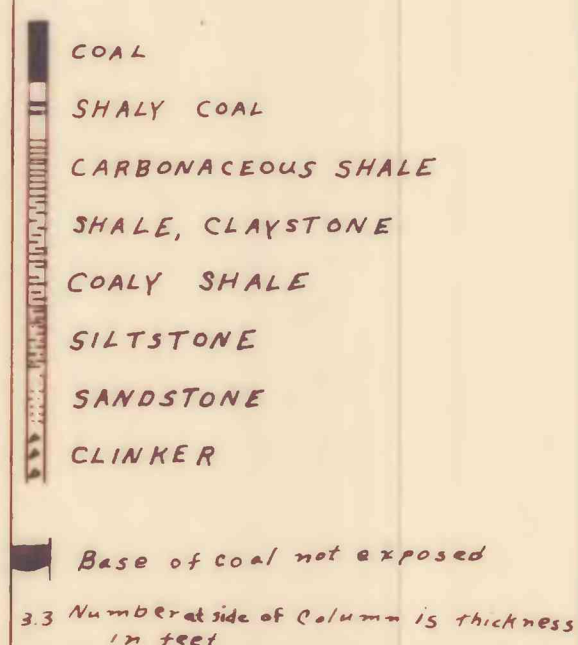 COAL
SHALY COAL
CARBONACEOUS SHALE
SHALE, CLAYSTONE
COALY SHALE
SILTSTONE
SANDSTONE
CLINKER
Base of coal not exposed
3.3 Number at side of Column is thickness
in feet